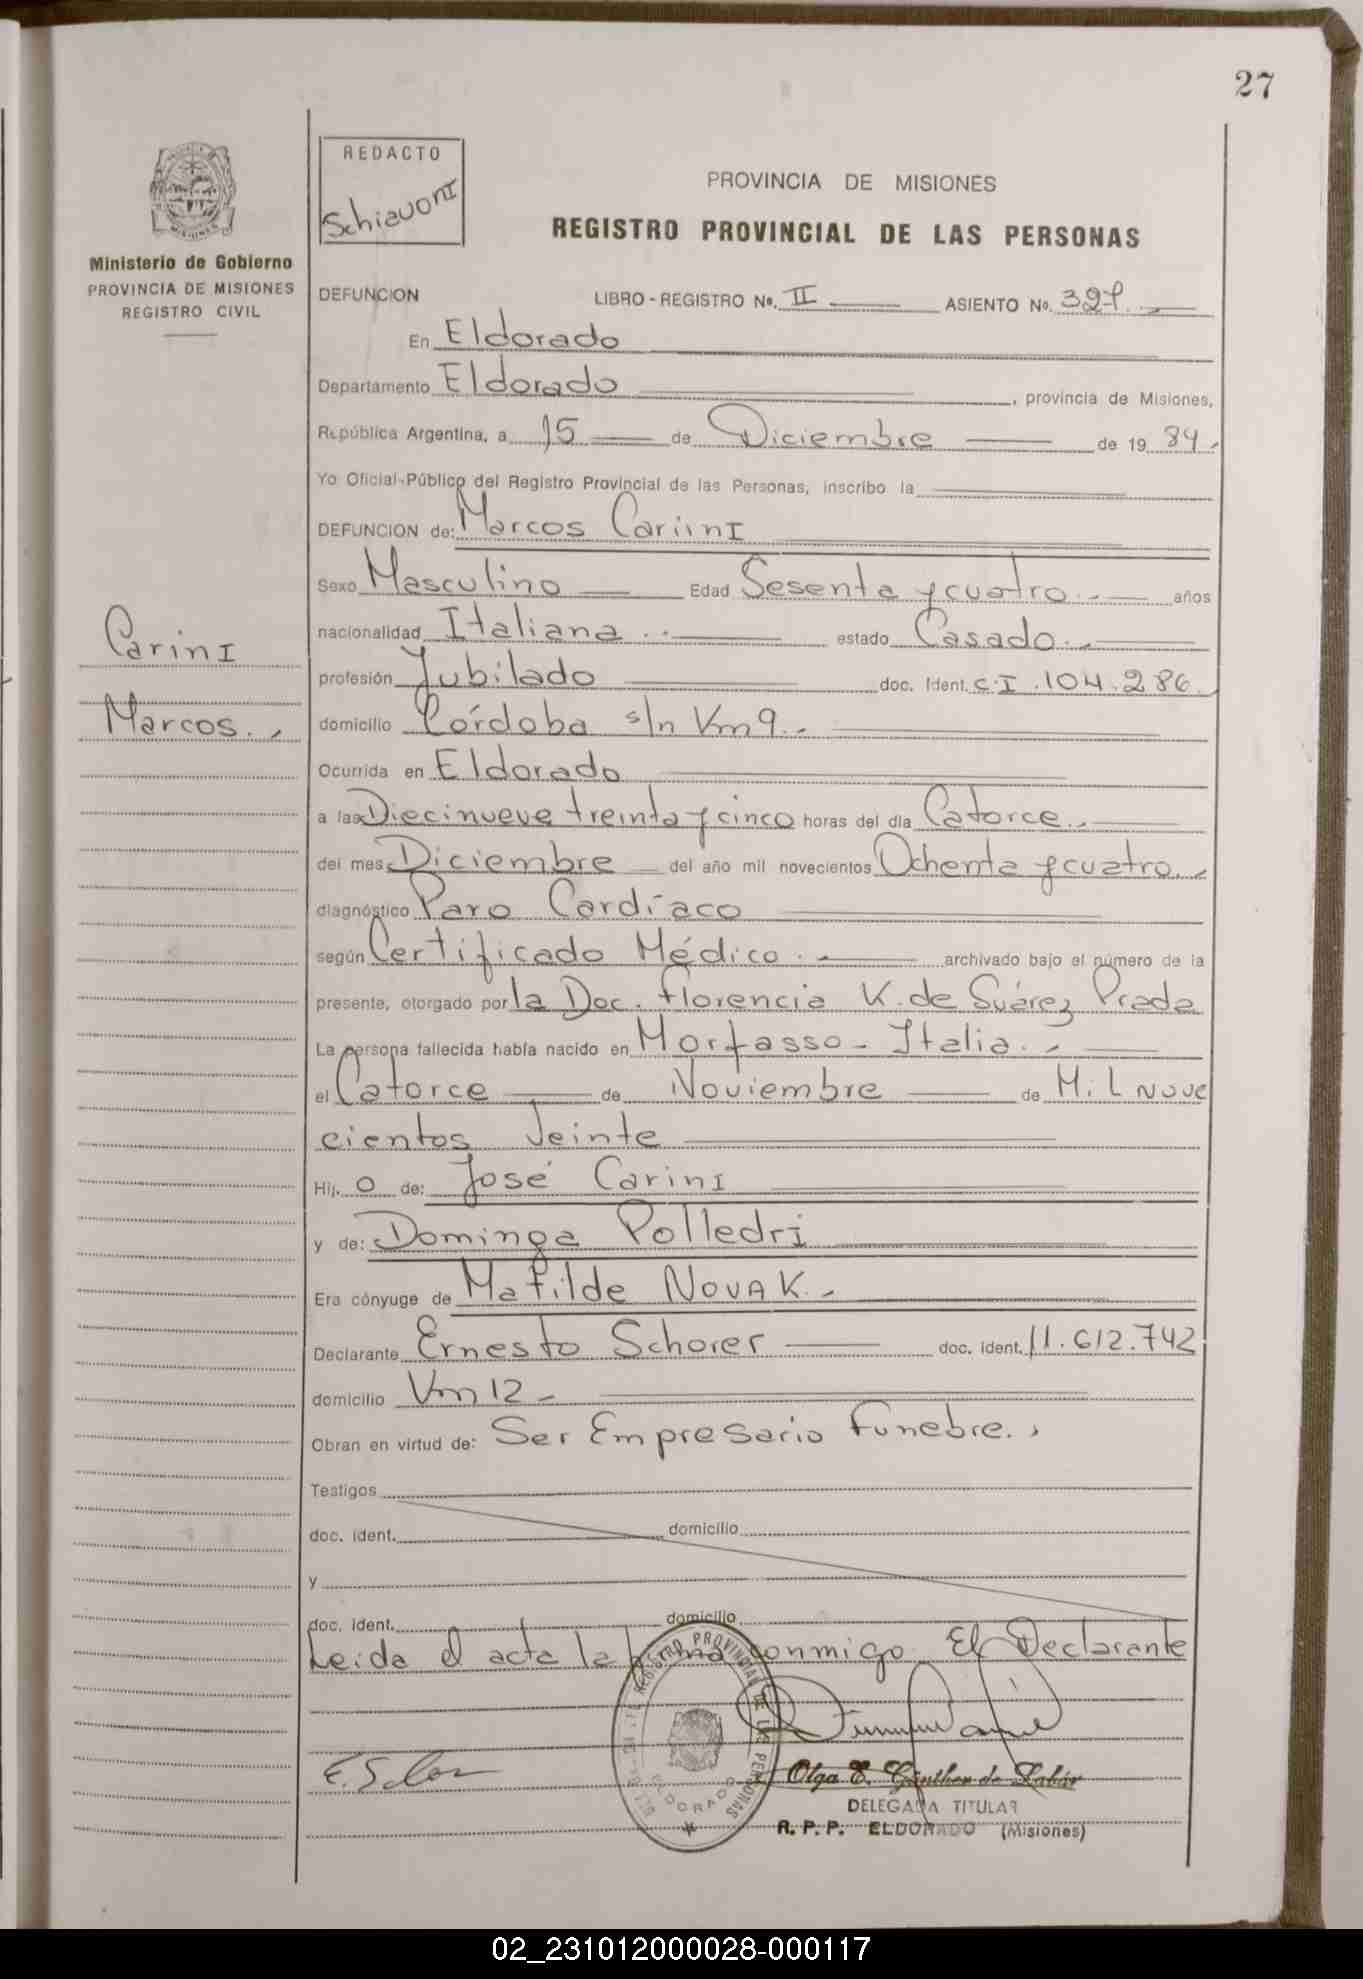 27
REDACTO
Schiavoni
Ministerio de Gobierno
PROVINCIA DE MISIONES
REGISTRO CIVIL
PROVINCIA DE MISIONES
REGISTRO PROVINCIAL DE LAS PERSONAS
DEFUNCION LIBRO - REGISTRO No. II ASIENTO No. 327.
En Eldorado
Departamento Eldorado, provincia de Misiones,
República Argentina, a 15 de Diciembre de 19 84.
Yo Oficial Público del Registro Provincial de las Personas, inscribo la
DEFUNCION de: Marcos Cariini
Sexo Masculino Edad Sesenta y cuatro.- años
nacionalidad Italiana.- estado Casado.-
profesión Jubilado doc. Ident. C.I. 104.286.
domicilio Córdoba s/n Km 9.-
Ocurrida en Eldorado
a las Diecinueve treinta y cinco horas del día Catorce.-
del mes Diciembre del año mil novecientos Ochenta y cuatro.-
diagnóstico Paro Cardíaco
según Certificado Médico.- archivado bajo el número de la
presente, otorgado por la Doc. Florencia K. de Suárez Prada
La persona fallecida había nacido en Morfasso - Italia.-
el Catorce de Noviembre de Mil Nove
cientos Veinte
Hij. o de: José Carini
y de: Dominga Polledri
Era cónyuge de Matilde Novak.-
Declarante Ernesto Schorer doc. ident. 11.612.742
domicilio Km 12.-
Obran en virtud de: Ser Empresario Funebre.,
Testigos
doc. ident. domicilio
y
doc. ident. domicilio
Leida el acta la firma conmigo El Declarante
Carini
Marcos.-
REGISTRO PROVINCIAL DE LAS PERSONAS
ELDORADO
Olga E. Günther de
DELEGADA TITULAR
R. P. P. ELDORADO (Misiones)
02_231012000028-000117